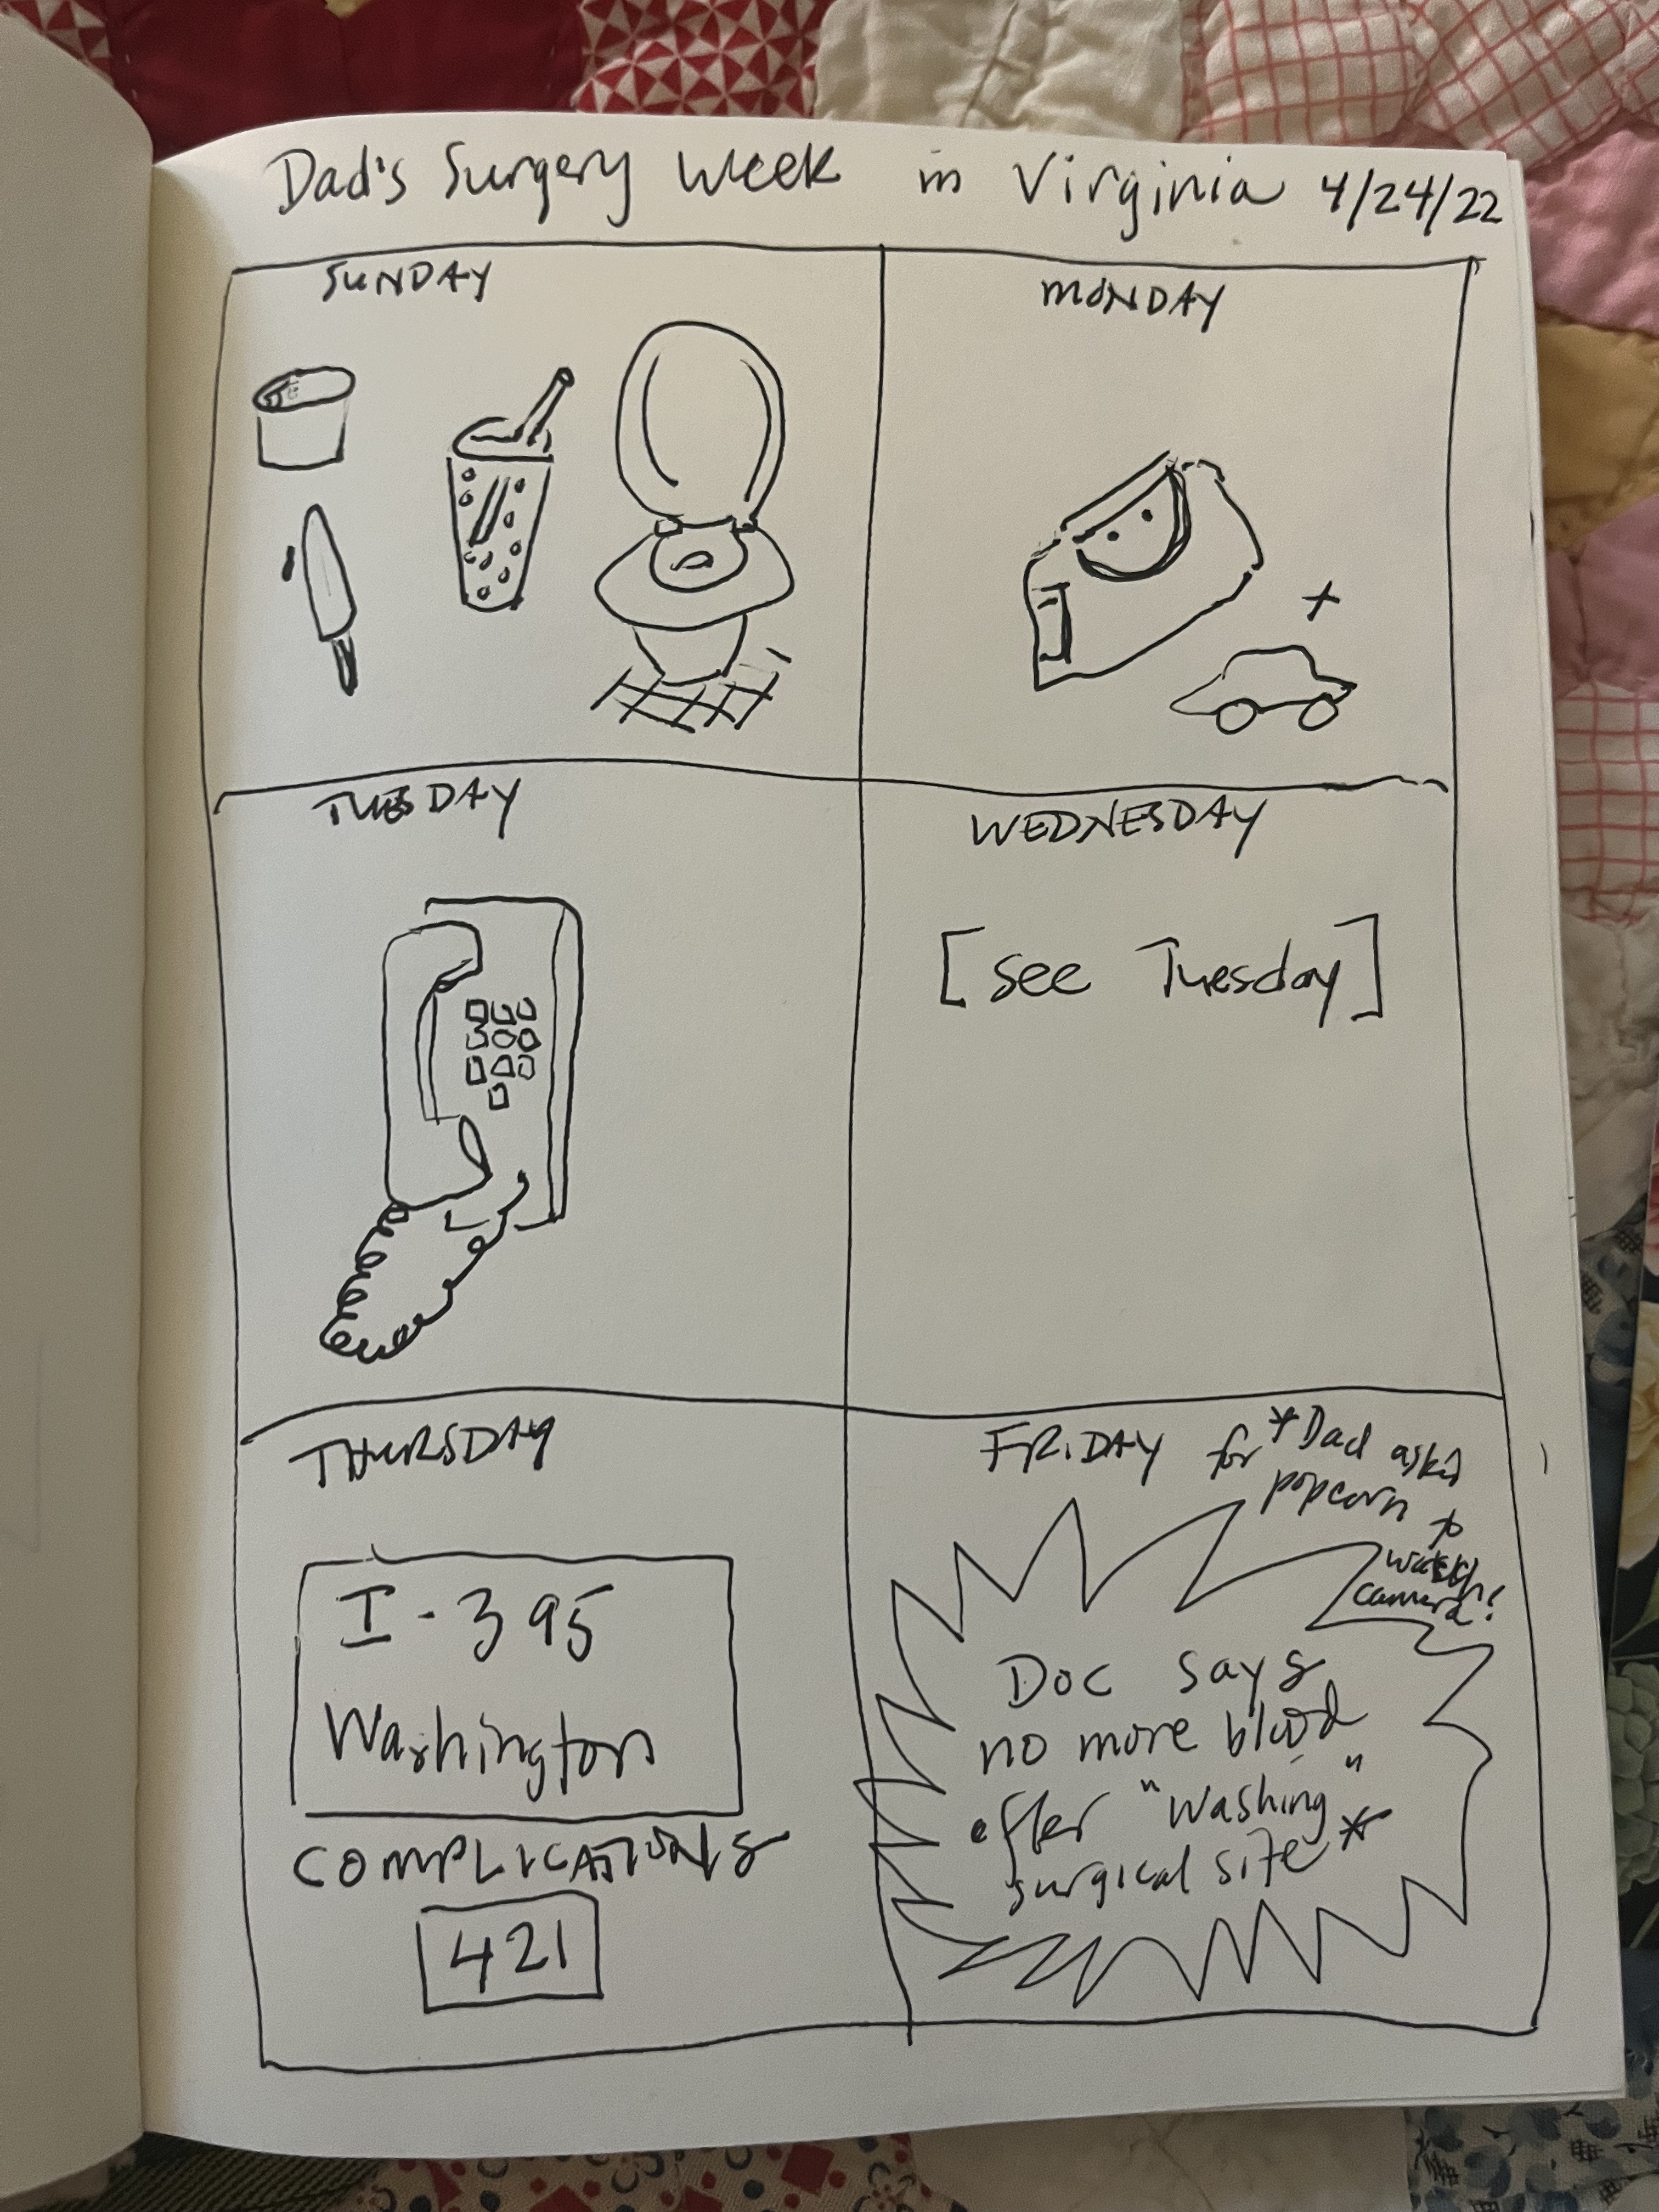 Dad's Surgery Week in Virginia 4/24/22
SUNDAY
MONDAY
TUESDAY
WEDNESDAY
[see Tuesday]
THURSDAY
I-395
Washington
COMPLICATIONS
421
FRIDAY
*Dad asked
for popcorn to
watch
camera!
Doc says
no more blood
after "washing"
surgical site*